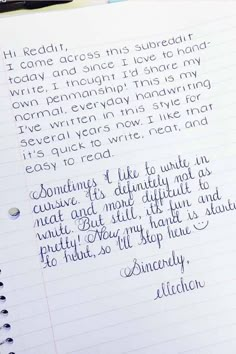 Hi Reddit,
I came across this subreddit
today and since I love to hand-
write, I thought I'd share my
own penmanship! This is my
normal, everyday handwriting
I've written in this style for
several years now. I like that
it's quick to write, neat, and
easy to read.
Sometimes I like to write in
cursive. It's definitely not as
neat and more difficult to
write. But still, it's fun and
pretty! Now, my hand is starting
to hurt, so I'll stop here
Sincerely,